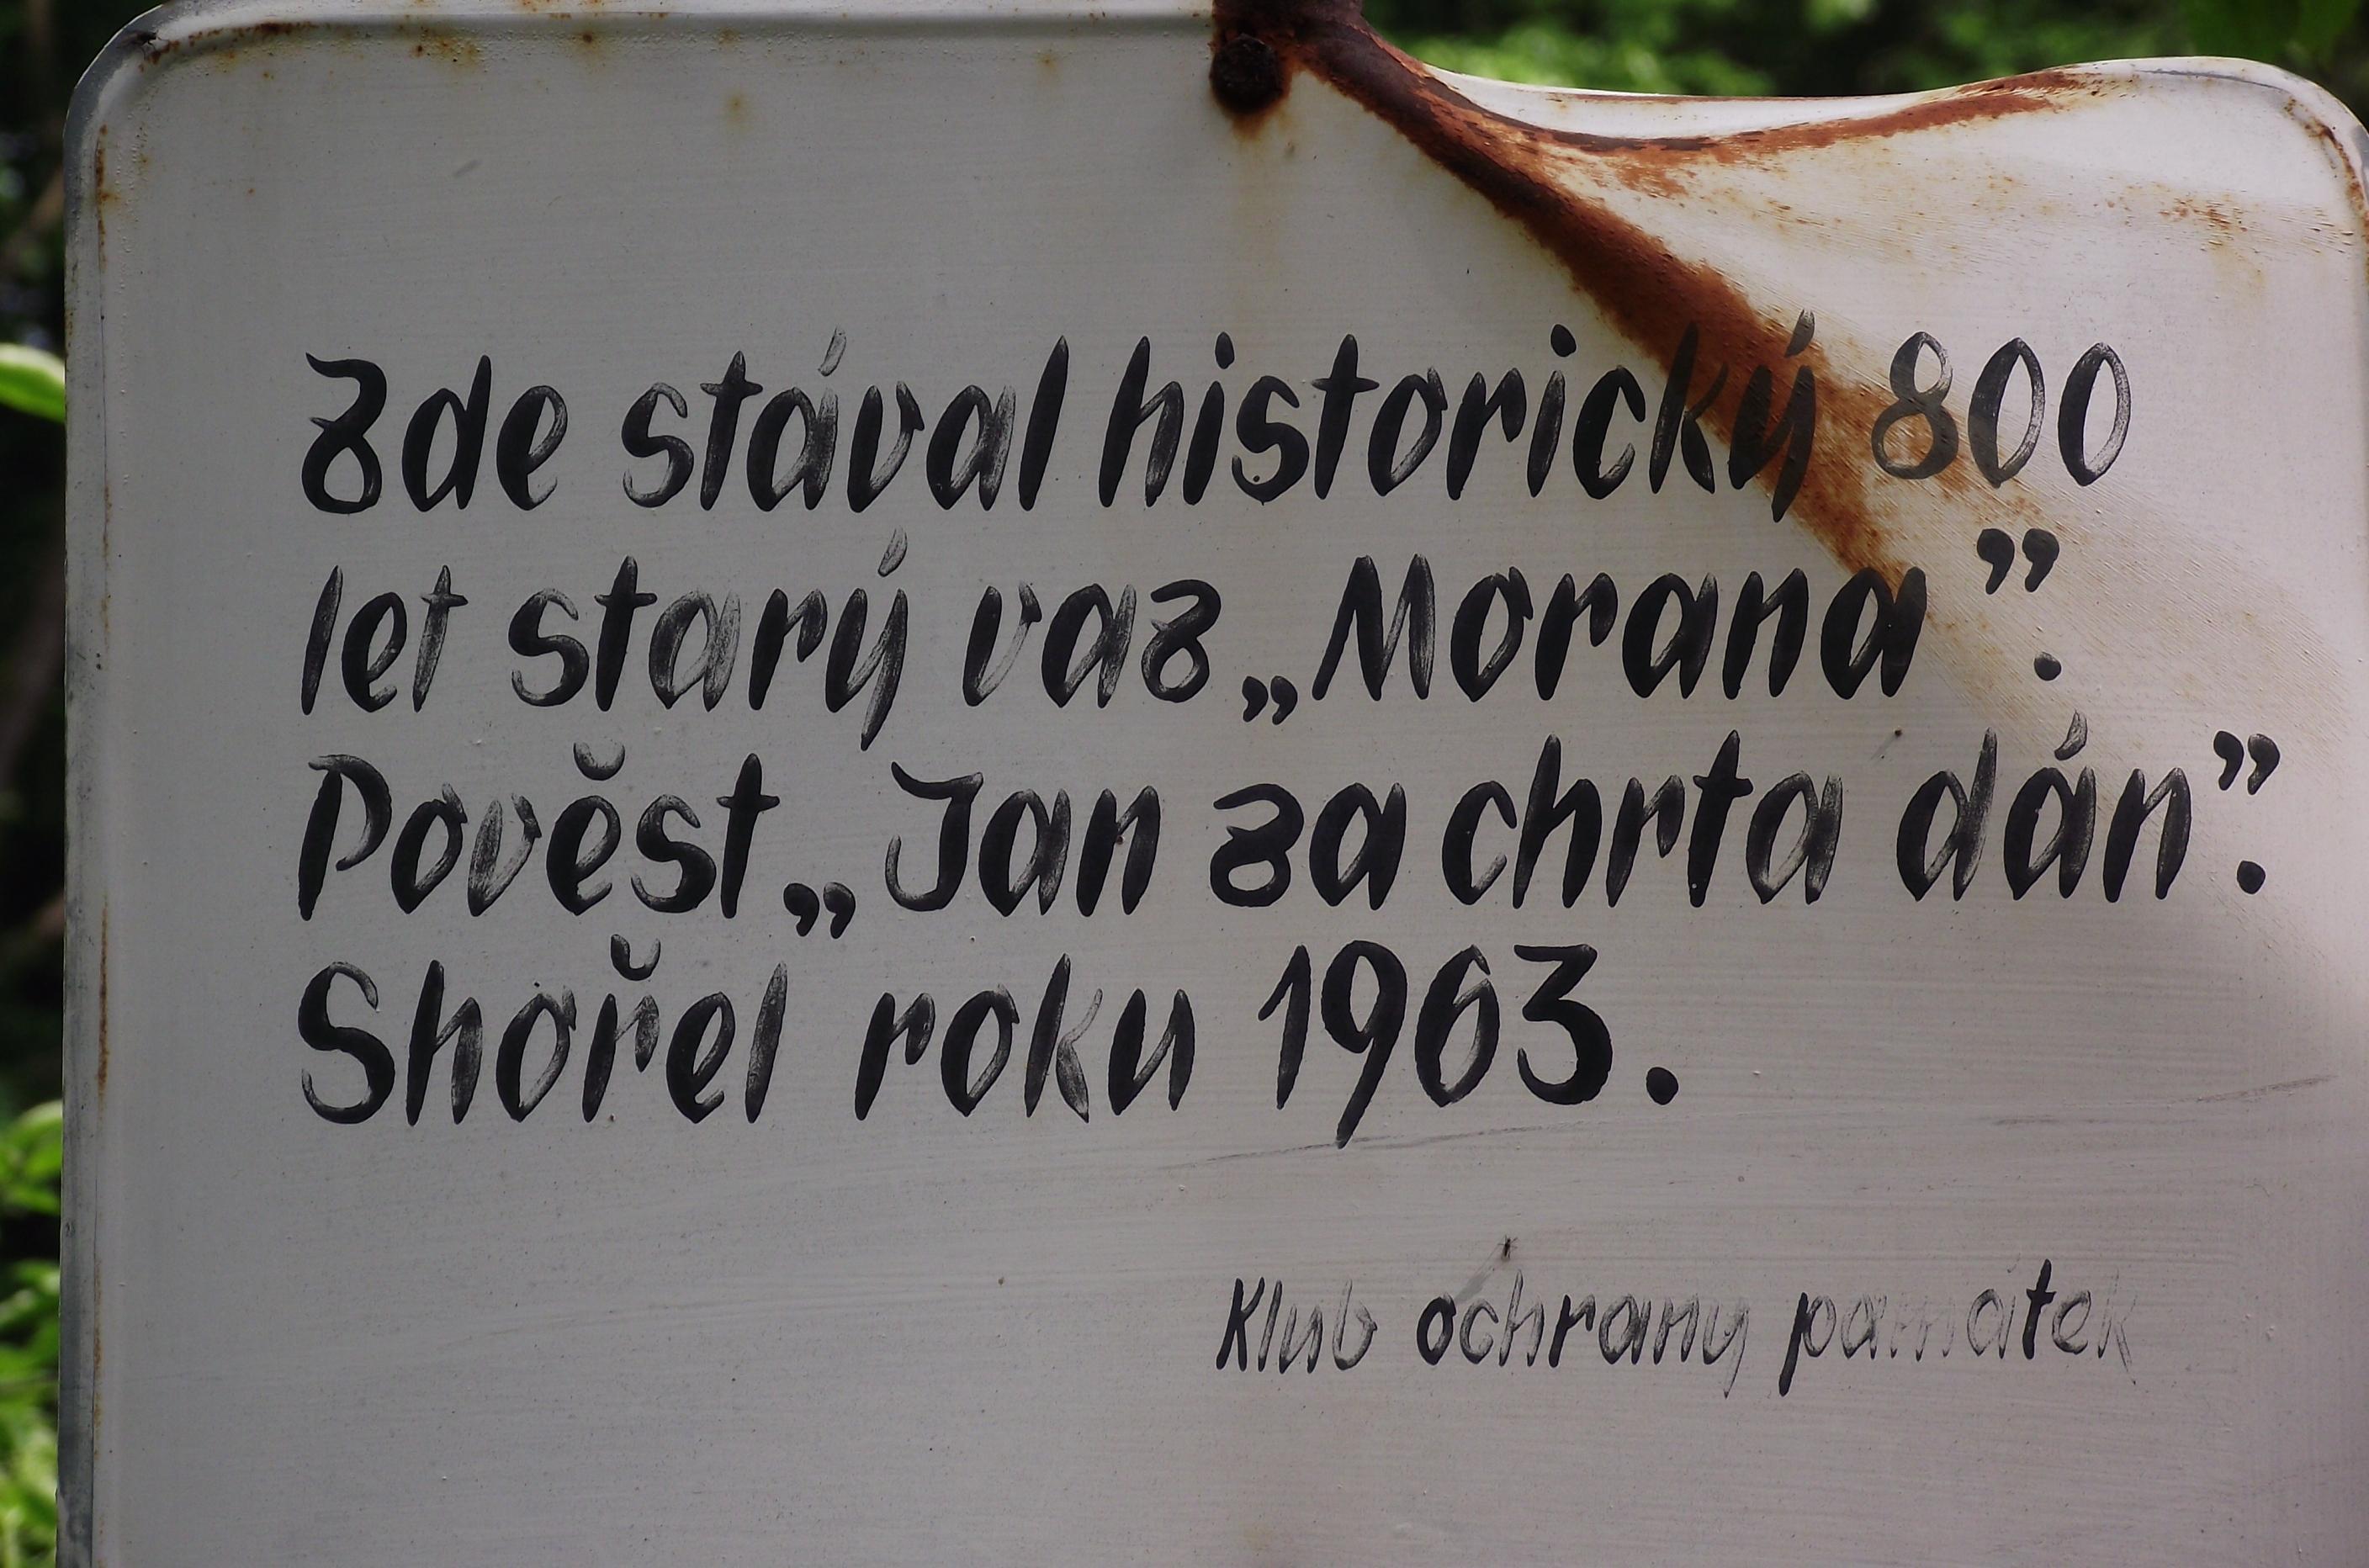 Zde stával historický 800
let starý vaz „Morana”.
Pověst „Jan za chrta dán”.
Shořel roku 1963.
Klub ochrany památek